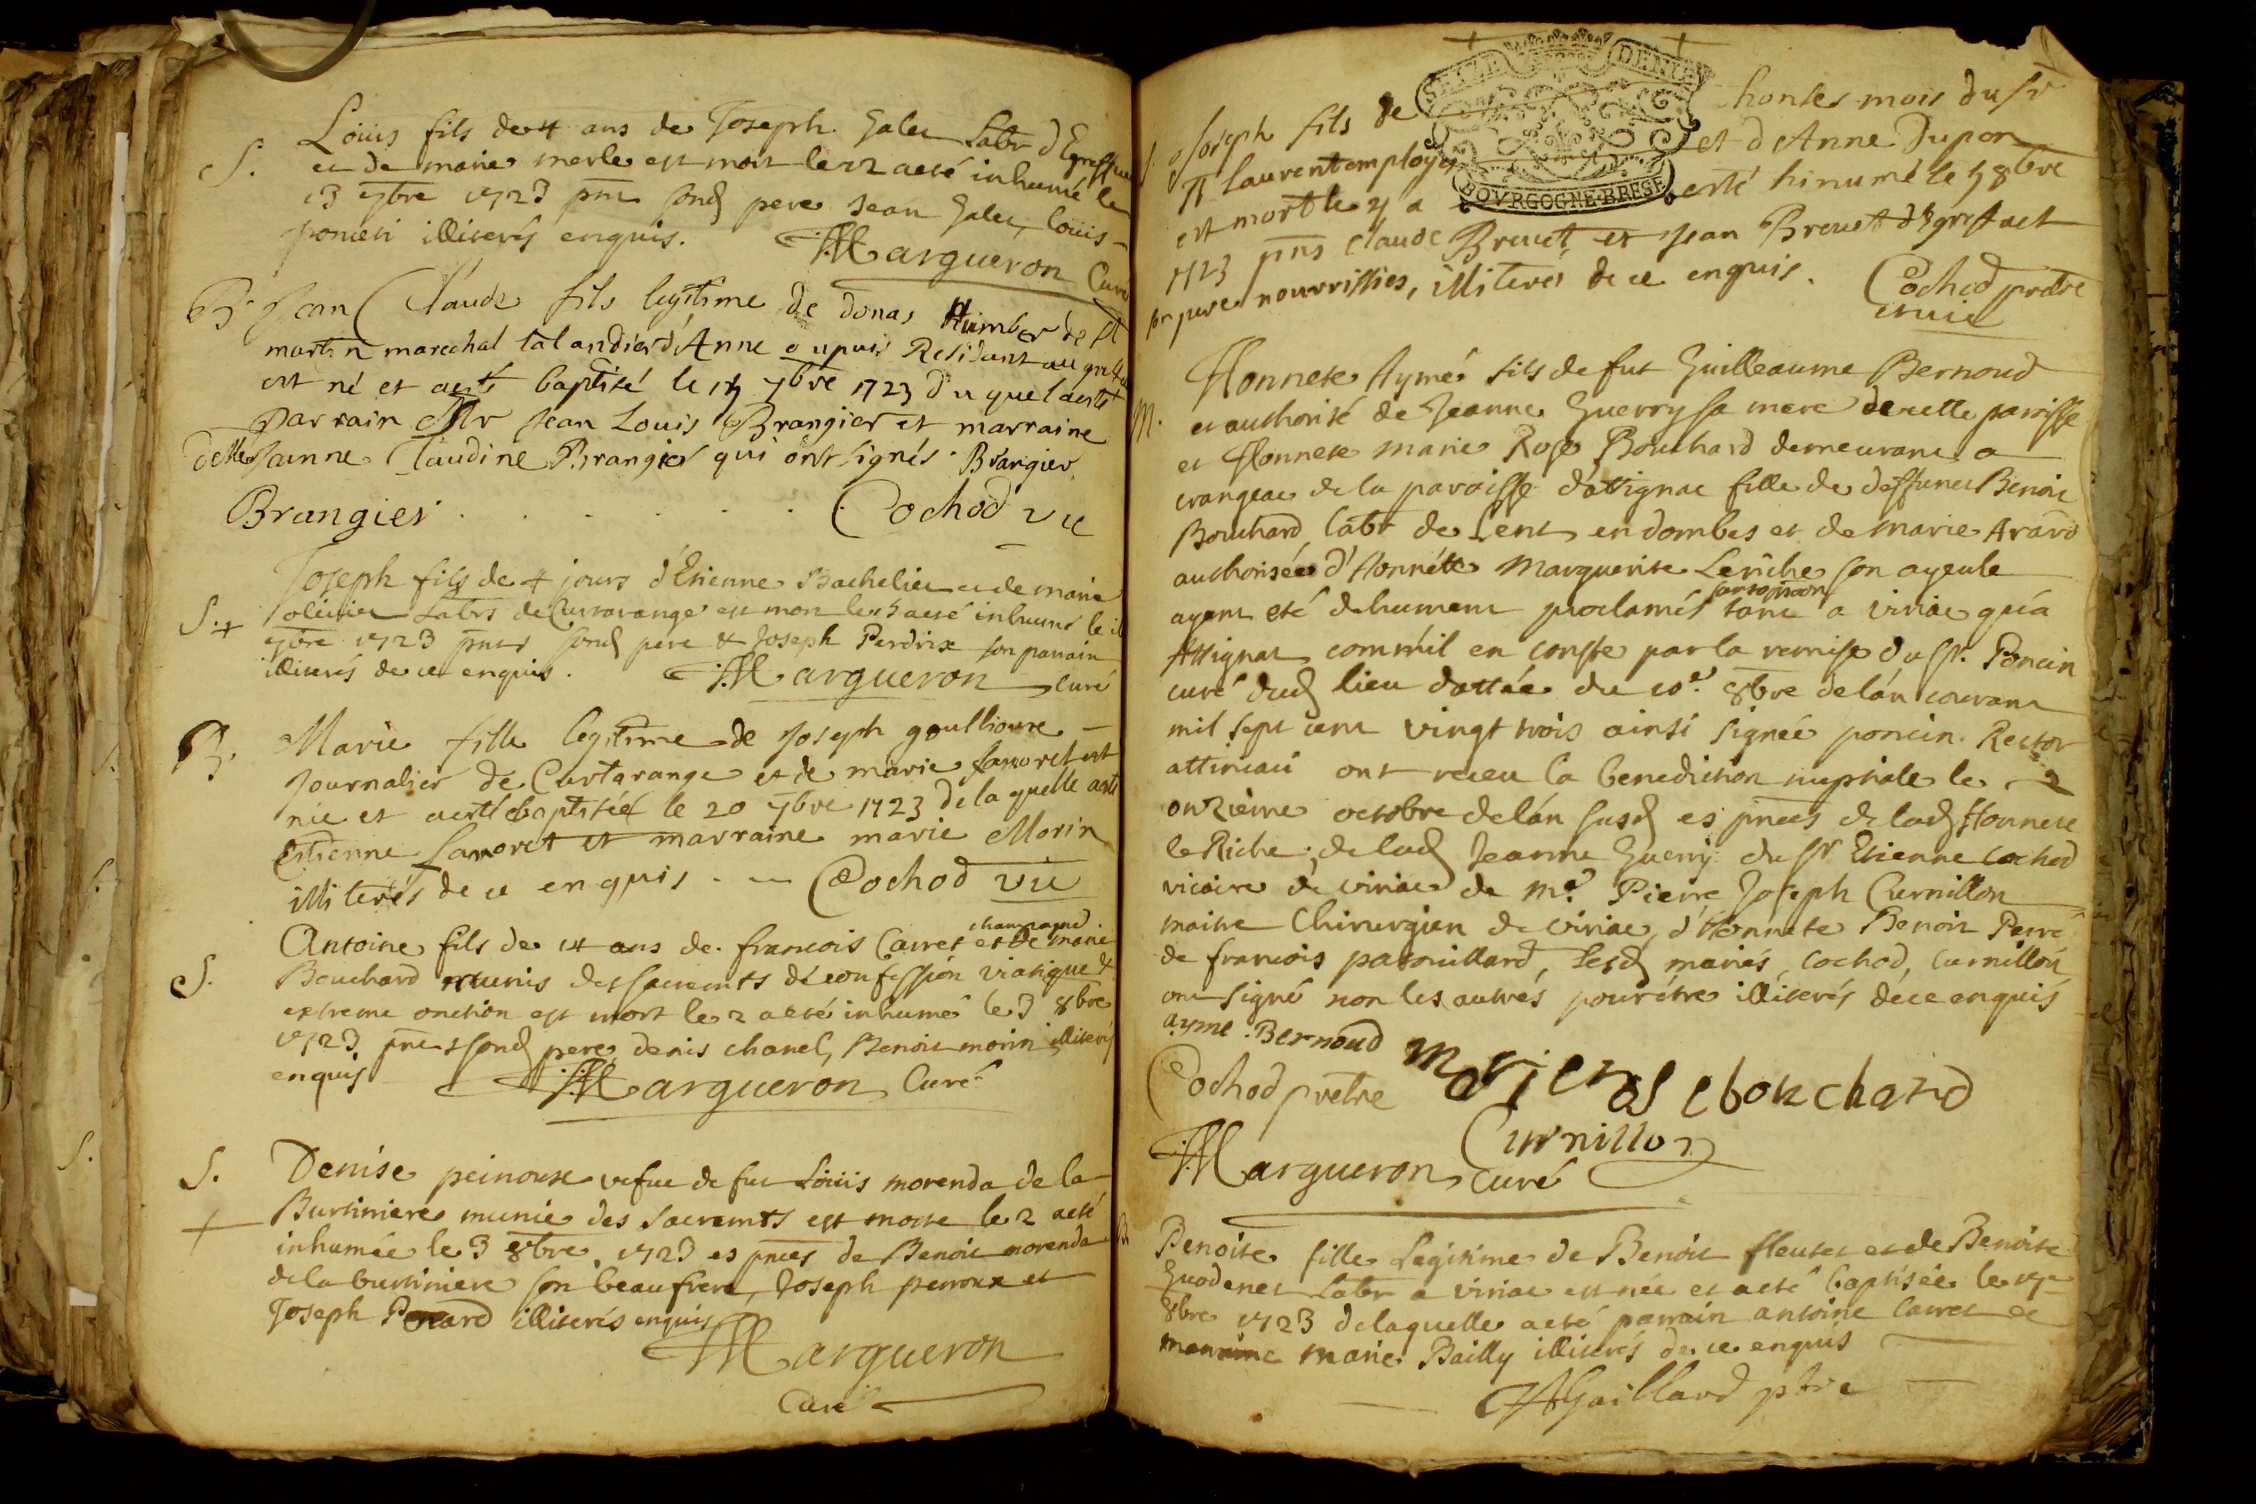 Loüis fils de 4 ans de Joseph Galer labr d'Egreffue
S. et de marie merle est mort le 12 a eté inhumé le
13 7bre 1723 pnt sond pere Jean Galer, loüis
poncin illiterés enquis. Margueron Curé
B. Jean Claude fils legitime de donas Humber de St
martin marechal talandier d'Anne Residant au
est né et a esté baptisé le 7bre 1723 du quel a esté
parrain Mr Jean Louis Brangier et marraine
delle Jeanne Claudine Brangier qui ont signés Brangier
Brangier . . . . . . Cochod vic
Joseph fils de 4 jours d'Etienne Bachelier et de marie
S.+ olivier labrs de Curtarange est mort le 15 a eté inhumé le
7bre 1723 pnts sond pere & Joseph Perdrix son parrain
illiterés de ce enquis. Margueron curé
B. Marie fille legitime de Joseph goullioure
Journalier de Curtarange et de marie Lanoret est
née et a esté baptisée le 20 7bre 1723 de la quelle a esté
Estienne Lanoret et marraine marie Morin
illiterés de ce enquis . . — Cochod vic
champagne
Antoine fils de 14 ans de francois Carret et de marie
S. Bouchard munis des sacremts de confession viatique &
extreme onction est mort le 2 a eté inhumé le 3 8bre
1723 pnts sond pere, denis chanel, Benoit morin illiterés
enquis Margueron Curé
S. Denise peinoux vefue de fut Loüis morenda de la
+ Burtiniere munie des sacremts est morte le 2 a eté
inhumée le 3 8bre 1723 es pnces de Benoit morenda
de la burtiniere son beaufrere, Joseph perroux et
Joseph illiterés enquis
Margueron
Curé
SEIZE DENIERS
BOVRGOGNE·BRESSE
S. Joseph fils de mois du Sr
laurent employé et d'Anne Dupon
est mort le 4 a esté hinumé le 5 8bre
1723 pns Claude Breuet et Jean Breuet d'Egreffuet
son pere nourrissier, illiteres de ce enquis. Cochod pretre
et vic
Honnete Aymé fils de fut Guilleaume Bernoud
M. et authorisé de Jeanne Guerry sa mere de cette paroisse
et Honnete marie Rose Bouchard demeurant a
crangeac de la paroisse d'attignac fille de deffunct Benoit
Bouchard labr de Lent en dombes et de marie Arard
authorisée d'Honnéte Marguerite Leriche son ayeule
ayant eté duhument proclamés tant a viriac qu'a
Attignat comm'il en conste par la remise du Sr. Poncin
curé dud lieu dattée du 10e. 8bre de l'án courant
mil sept cent vingt trois ainsi signée poncin. Rector
attiniaci ont receu la benediction nuptiale le
onzième octobre de l'án susd es pnces de lad Honnete
le Riche, de lad Jeanne Guerry du Sr Etienne Cochod
vicaire de viriac de me. Pierre Joseph Curnillon
maitre Chirurgien de viriac, d'Honnete Benoit Perré
de francois patouillard, Lesd mariés, Cochod, Curnillon
ont signé non les autrés pour étre illiterés de ce enquis
ayme . Bernoud
marieros ebouchard
Cochod pretre
Curnillon
Margueron curé
B Benoite fille Legitime de Benoit fleuret et de Benoite
Guodenet labr a viriac est née et a eté baptisée le
8bre 1723 de laquelle a eté parrain antoine Carret et
marraine marie Bailly illiterés de ce enquis
Gaillard ptre